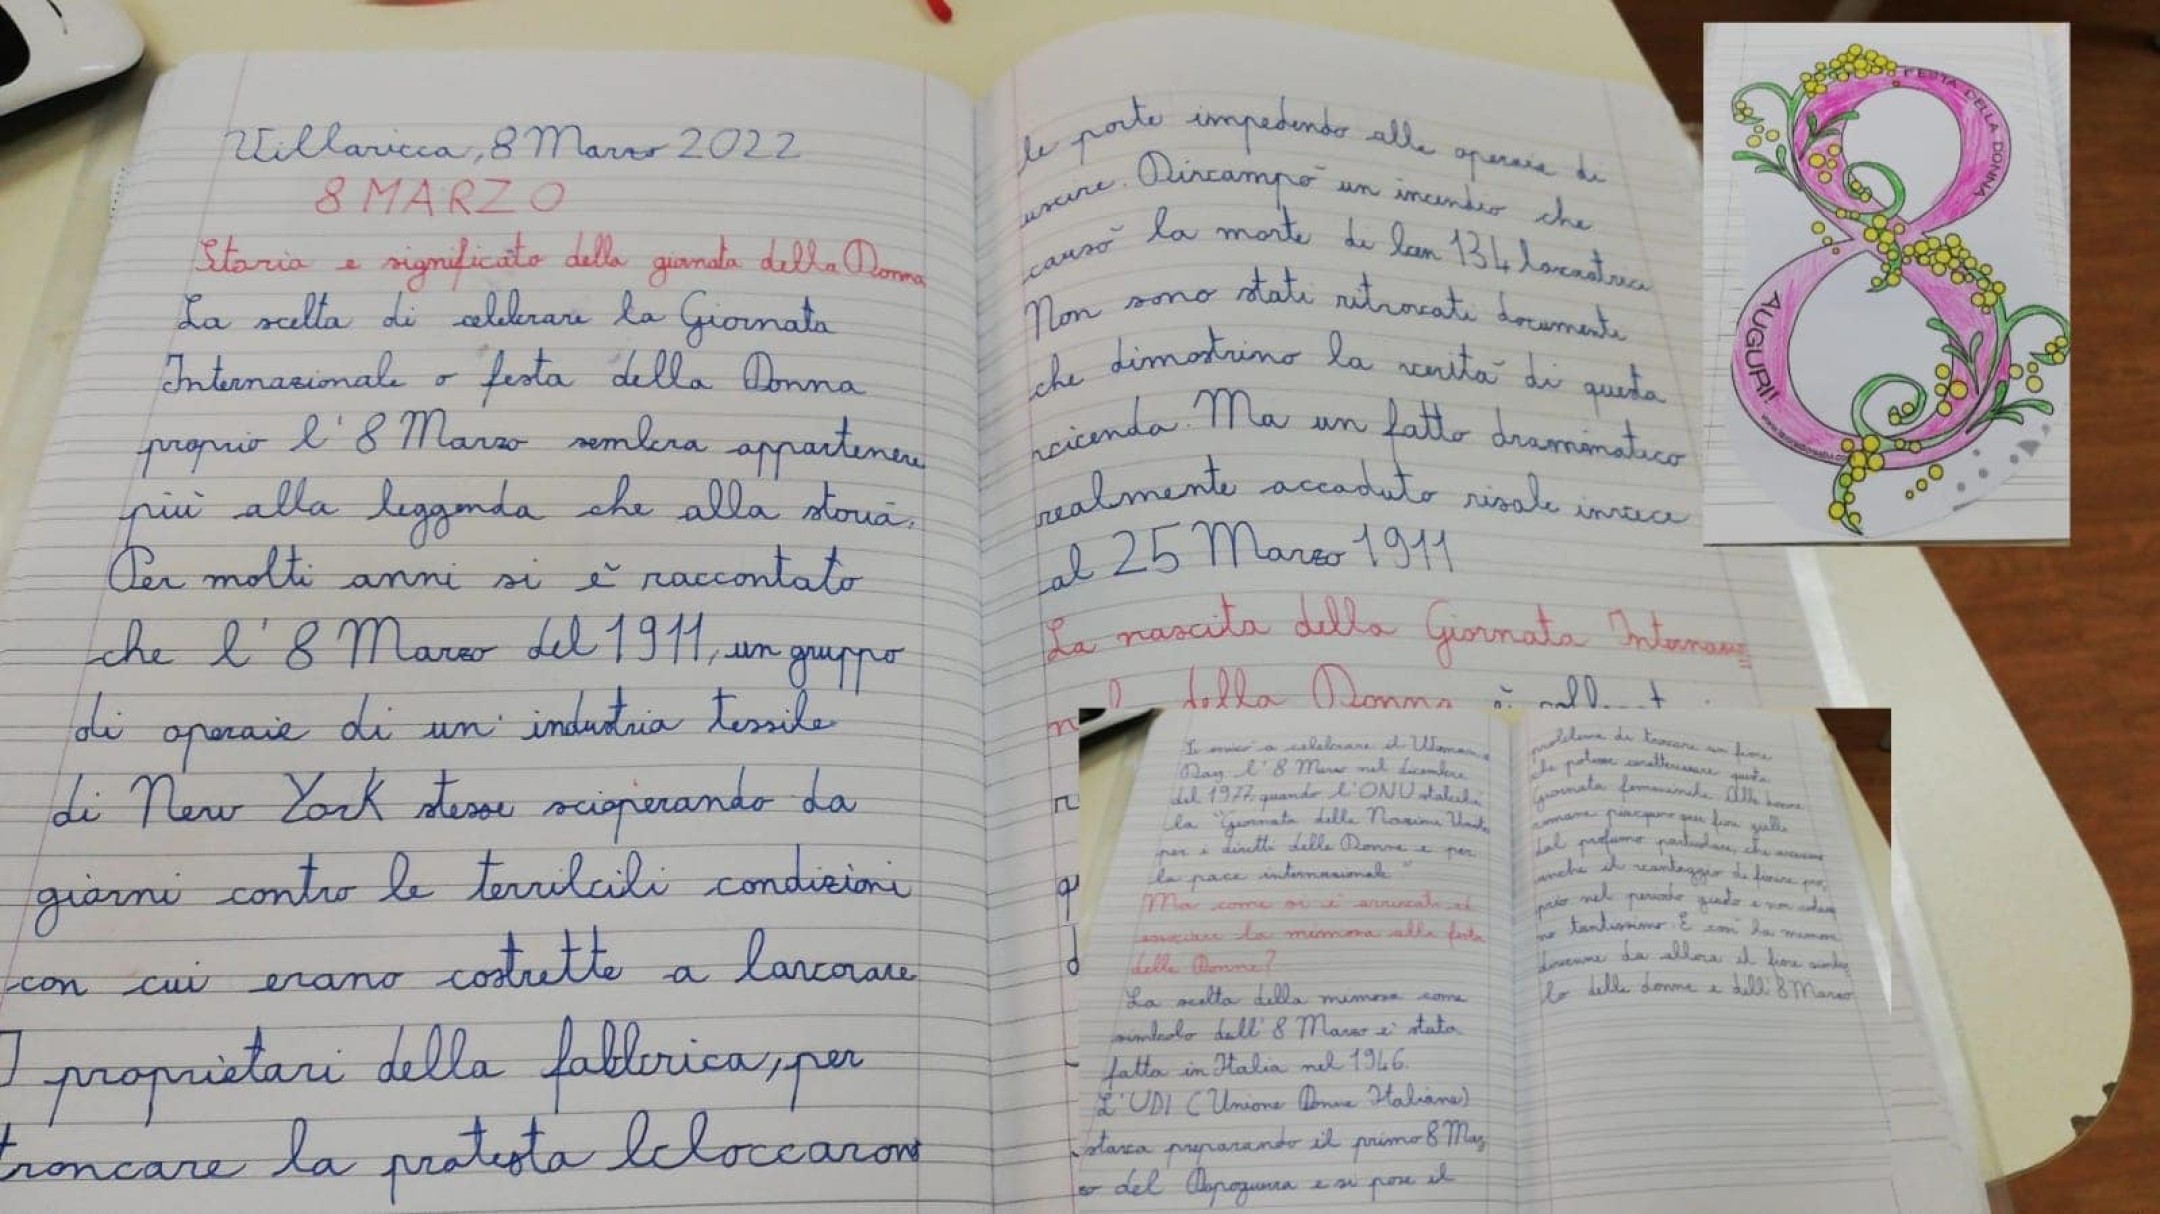 Villaricca, 8 Marzo 2022
8 MARZO
Storia e significato della giornata della Donna
La scelta di celebrare la Giornata
Internazionale o festa della Donna
proprio l'8 Marzo sembra appartenere
più alla leggenda che alla storia.
Per molti anni si è raccontato
che l'8 Marzo del 1911, un gruppo
di operaie di un' industria tessile
di New York stesse scioperando da
giorni contro le terribili condizioni
con cui erano costrette a lavorare
I proprietari della fabbrica, per
troncare la protesta bloccarono
le porte impedendo alle operaie di
uscire. Divampò un incendio che
causò la morte di ben 134 lavoratrici
Non sono stati ritrovati documenti
che dimostrino la verità di questa
vicenda. Ma un fatto drammatico
realmente accaduto risale invece
al 25 Marzo 1911
La nascita della Giornata Internazio
della Donna
FESTA DELLA DONNA
AUGURI!
Si iniziò a celebrare il Womans
Day l'8 Marzo nel dicembre
del 1977, quando l'ONU stabilì
la "Giornata delle Nazioni Unite
per i diritti delle Donne e per
la pace internazionale"
Ma come si è arrivati ad
associare la mimosa alla festa
delle Donne?
La scelta della mimosa come
simbolo dell'8 Marzo è stata
fatta in Italia nel 1946.
L'UDI (Unione Donne Italiane)
stava preparando il primo 8 Mar
zo del Dopoguerra e si pose il
problema di trovare un fiore
che potesse caratterizzare questa
Giornata femminile. Alle donne
romane piacquero quei fiori gialli
dal profumo particolare, che avevano
anche il vantaggio di fiorire pro
prio nel periodo giusto e non costava
no tantissimo. E così la mimosa
divenne da allora il fiore simbo
lo delle donne e dell'8 Marzo